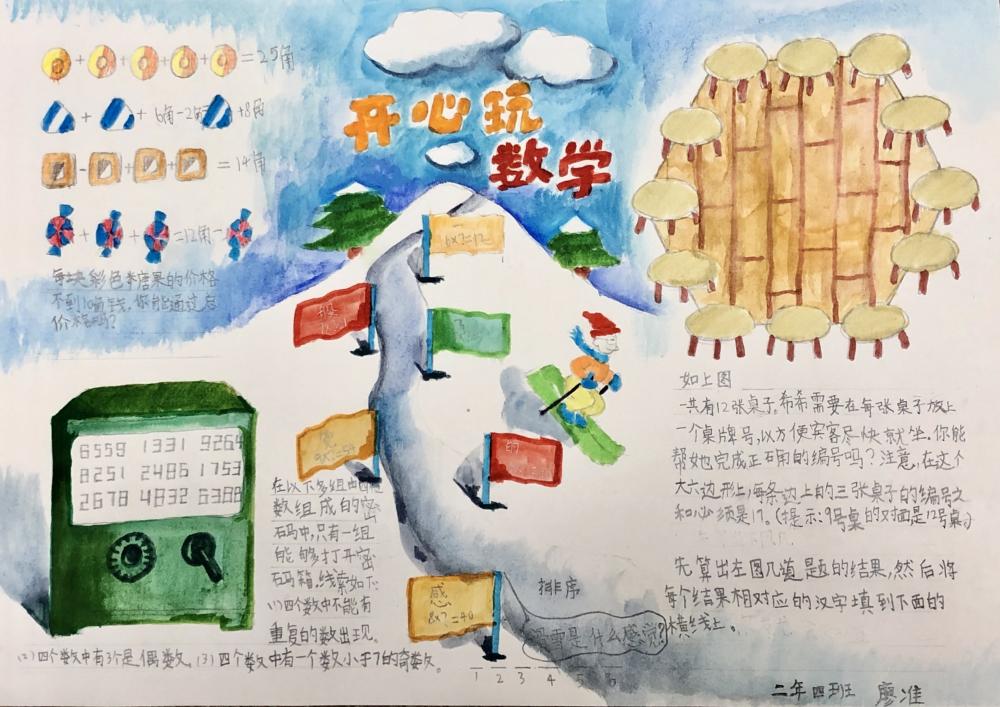 开心玩
数学
= 25角
+ + 6角-2角 +8角
= 14角
+ + =12角-
每块彩色糖果的价格
不到10角钱,你能通过
价格吗?
6559 1331 9264
8251 2486 1753
2678 4832 6388
在以下多组由四
数组成的密
码中,只有一组
能够打开密
码箱,线索如下:
(1)四个数中不能有
重复的数出现。
(2)四个数中有3个是偶数。(3)四个数中有一个数小于7的奇数。
6×?=12
9×?=54
的
感
8×?=40
排序
滑雪是什么感觉?
1 2 3 4 5 6
如上图
一共有12张桌子,希希需要在每张桌子放上
一个桌牌号,以方便宾客尽快就坐.你能
帮她完成正确的编号吗?注意,在这个
大六边形上,每条边上的三张桌子的编号之
和必须是17。(提示:9号桌的对面是12号桌)
先算出左图几道题的结果,然后将
每个结果相对应的汉字填到下面的
横线上。
二年四班 廖准